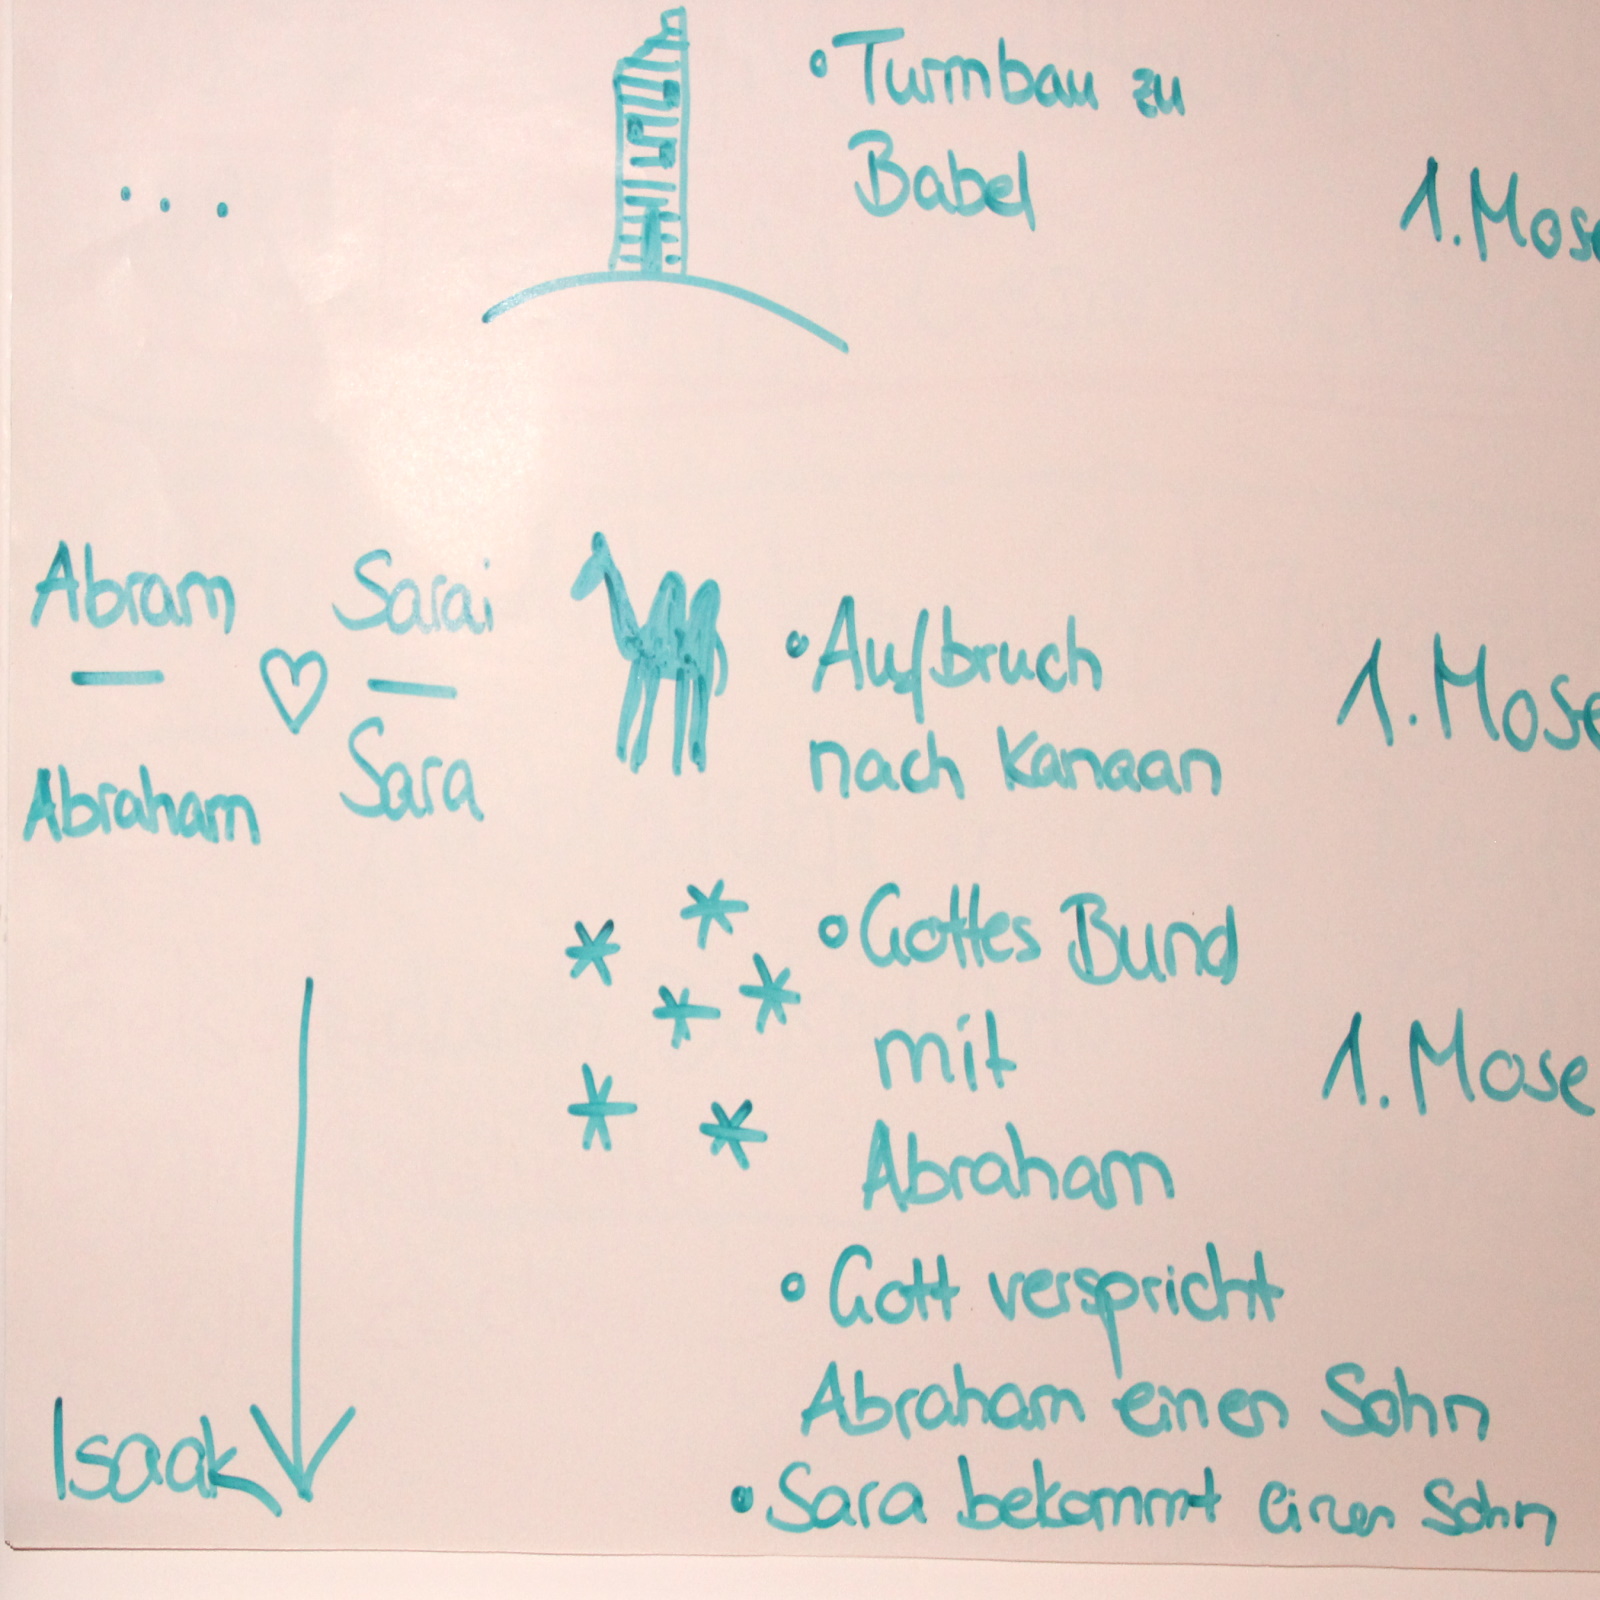 • Turmbau zu
Babel
1. Mose
...
Abram Sarai
Abraham Sara
• Aufbruch
nach Kanaan
1. Mose
• Gottes Bund
mit
Abraham
1. Mose
• Gott verspricht
Abraham einen Sohn
Isaak
• Sara bekommt einen Sohn